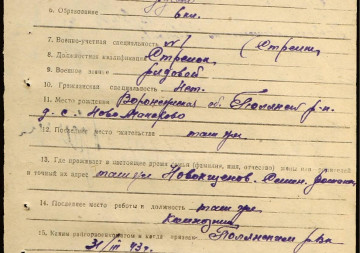 6. Образование 6 кл.
7. Военно-учетная специальность №1 (Стрелк.
8. Должностная квалификация Стрелок
9. Военное звание рядовой
10. Гражданская специальность Нет.
11. Место рождения Воронежская об. р-н
д. с. Ново
12. Последнее место жительства там же
13. Где проживает в настоящее время семья (фамилия, имя, отчество) жены или родителей
и точный их адрес там же
14. Последнее место работы и должность там же
15. Каким райгорвоенкоматом и когда призван РВк
31/III 43 г.